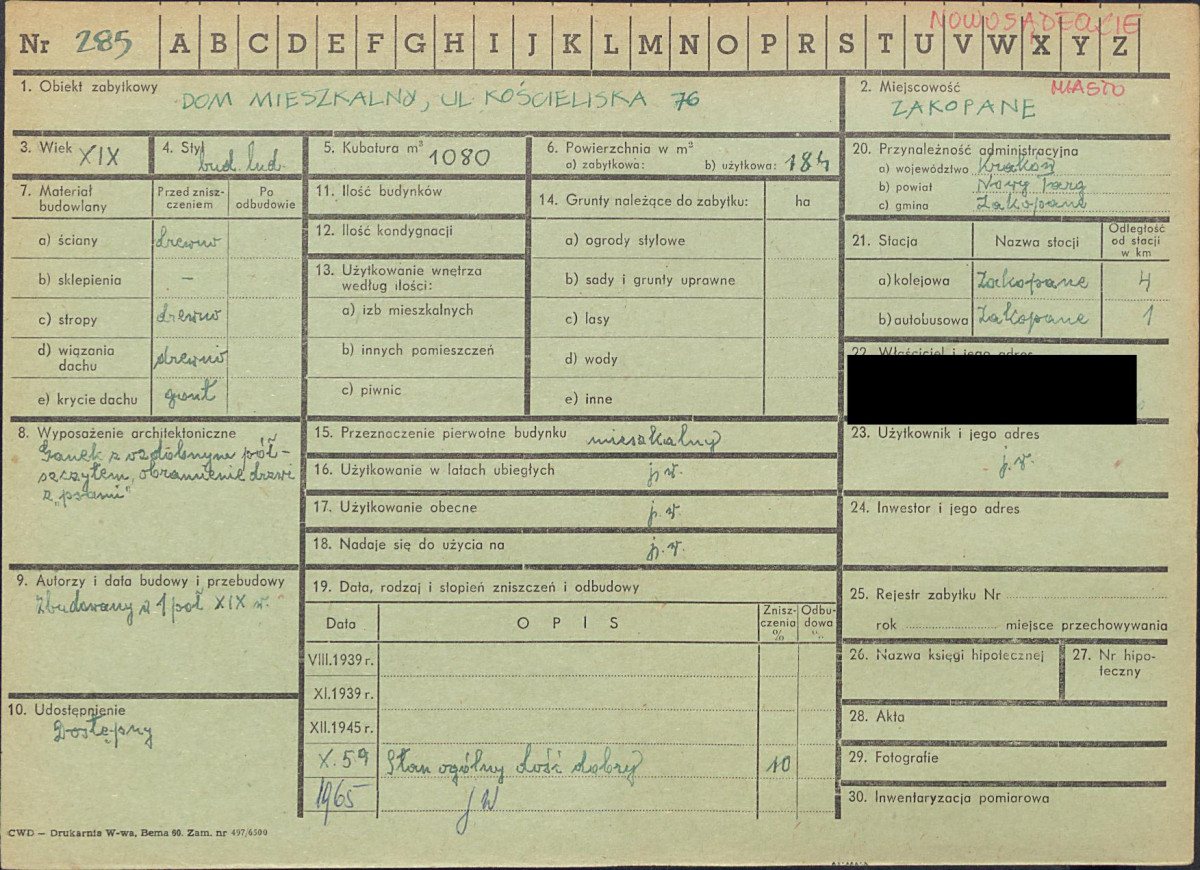 NOWOSĄDECKIE
Nr 285 A B C D E F G H I J K L M N O P R S T U V W X Y Z
1. Obiekt zabytkowy
DOM MIESZKALNY, UL. KOŚCIELISKA 76
2. Miejscowość MIASTO
ZAKOPANE
3. Wiek XIX
4. Styl bud. lud.
5. Kubatura m³ 1080
6. Powierzchnia w m²
a) zabytkowa: b) użytkowa: 184
20. Przynależność administracyjna
a) województwo Kraków
b) powiat Nowy Targ
c) gmina Zakopane
7. Materiał budowlany
Przed znisz-
czeniem
Po
odbudowie
a) ściany drewno
b) sklepienia –
c) stropy drewno
d) wiązania
dachu drewno
e) krycie dachu gont
11. Ilość budynków
12. Ilość kondygnacji
13. Użytkowanie wnętrza
według ilości:
a) izb mieszkalnych
b) innych pomieszczeń
c) piwnic
14. Grunty należące do zabytku: ha
a) ogrody stylowe
b) sady i grunty uprawne
c) lasy
d) wody
e) inne
21. Stacja Nazwa stacji
Odległość
od stacji
w km
a) kolejowa Zakopane 4
b) autobusowa Zakopane 1
22. Właściciel i jego adres
8. Wyposażenie architektoniczne
Ganek z ozdobnym pół-
szczytem, obramienie drzwi
z „psami"
15. Przeznaczenie pierwotne budynku mieszkalny
16. Użytkowanie w latach ubiegłych j.w.
17. Użytkowanie obecne j.w.
18. Nadaje się do użycia na j.w.
23. Użytkownik i jego adres
j.w.
24. Inwestor i jego adres
9. Autorzy i data budowy i przebudowy
Zbudowany z 1 poł XIX w.
10. Udostępnienie
Dostępny
19. Data, rodzaj i stopień zniszczeń i odbudowy
Data OPIS
Znisz-
czenia
%
Odbu-
dowa
%
VIII.1939 r.
XI.1939 r.
XII.1945 r.
X.59 Stan ogólny dość dobry 10
1965 jw
25. Rejestr zabytku Nr
rok miejsce przechowywania
26. Nazwa księgi hipotecznej
27. Nr hipo-
teczny
28. Akta
29. Fotografie
30. Inwentaryzacja pomiarowa
CWD — Drukarnia W-wa, Bema 60. Zam. nr 497/6500